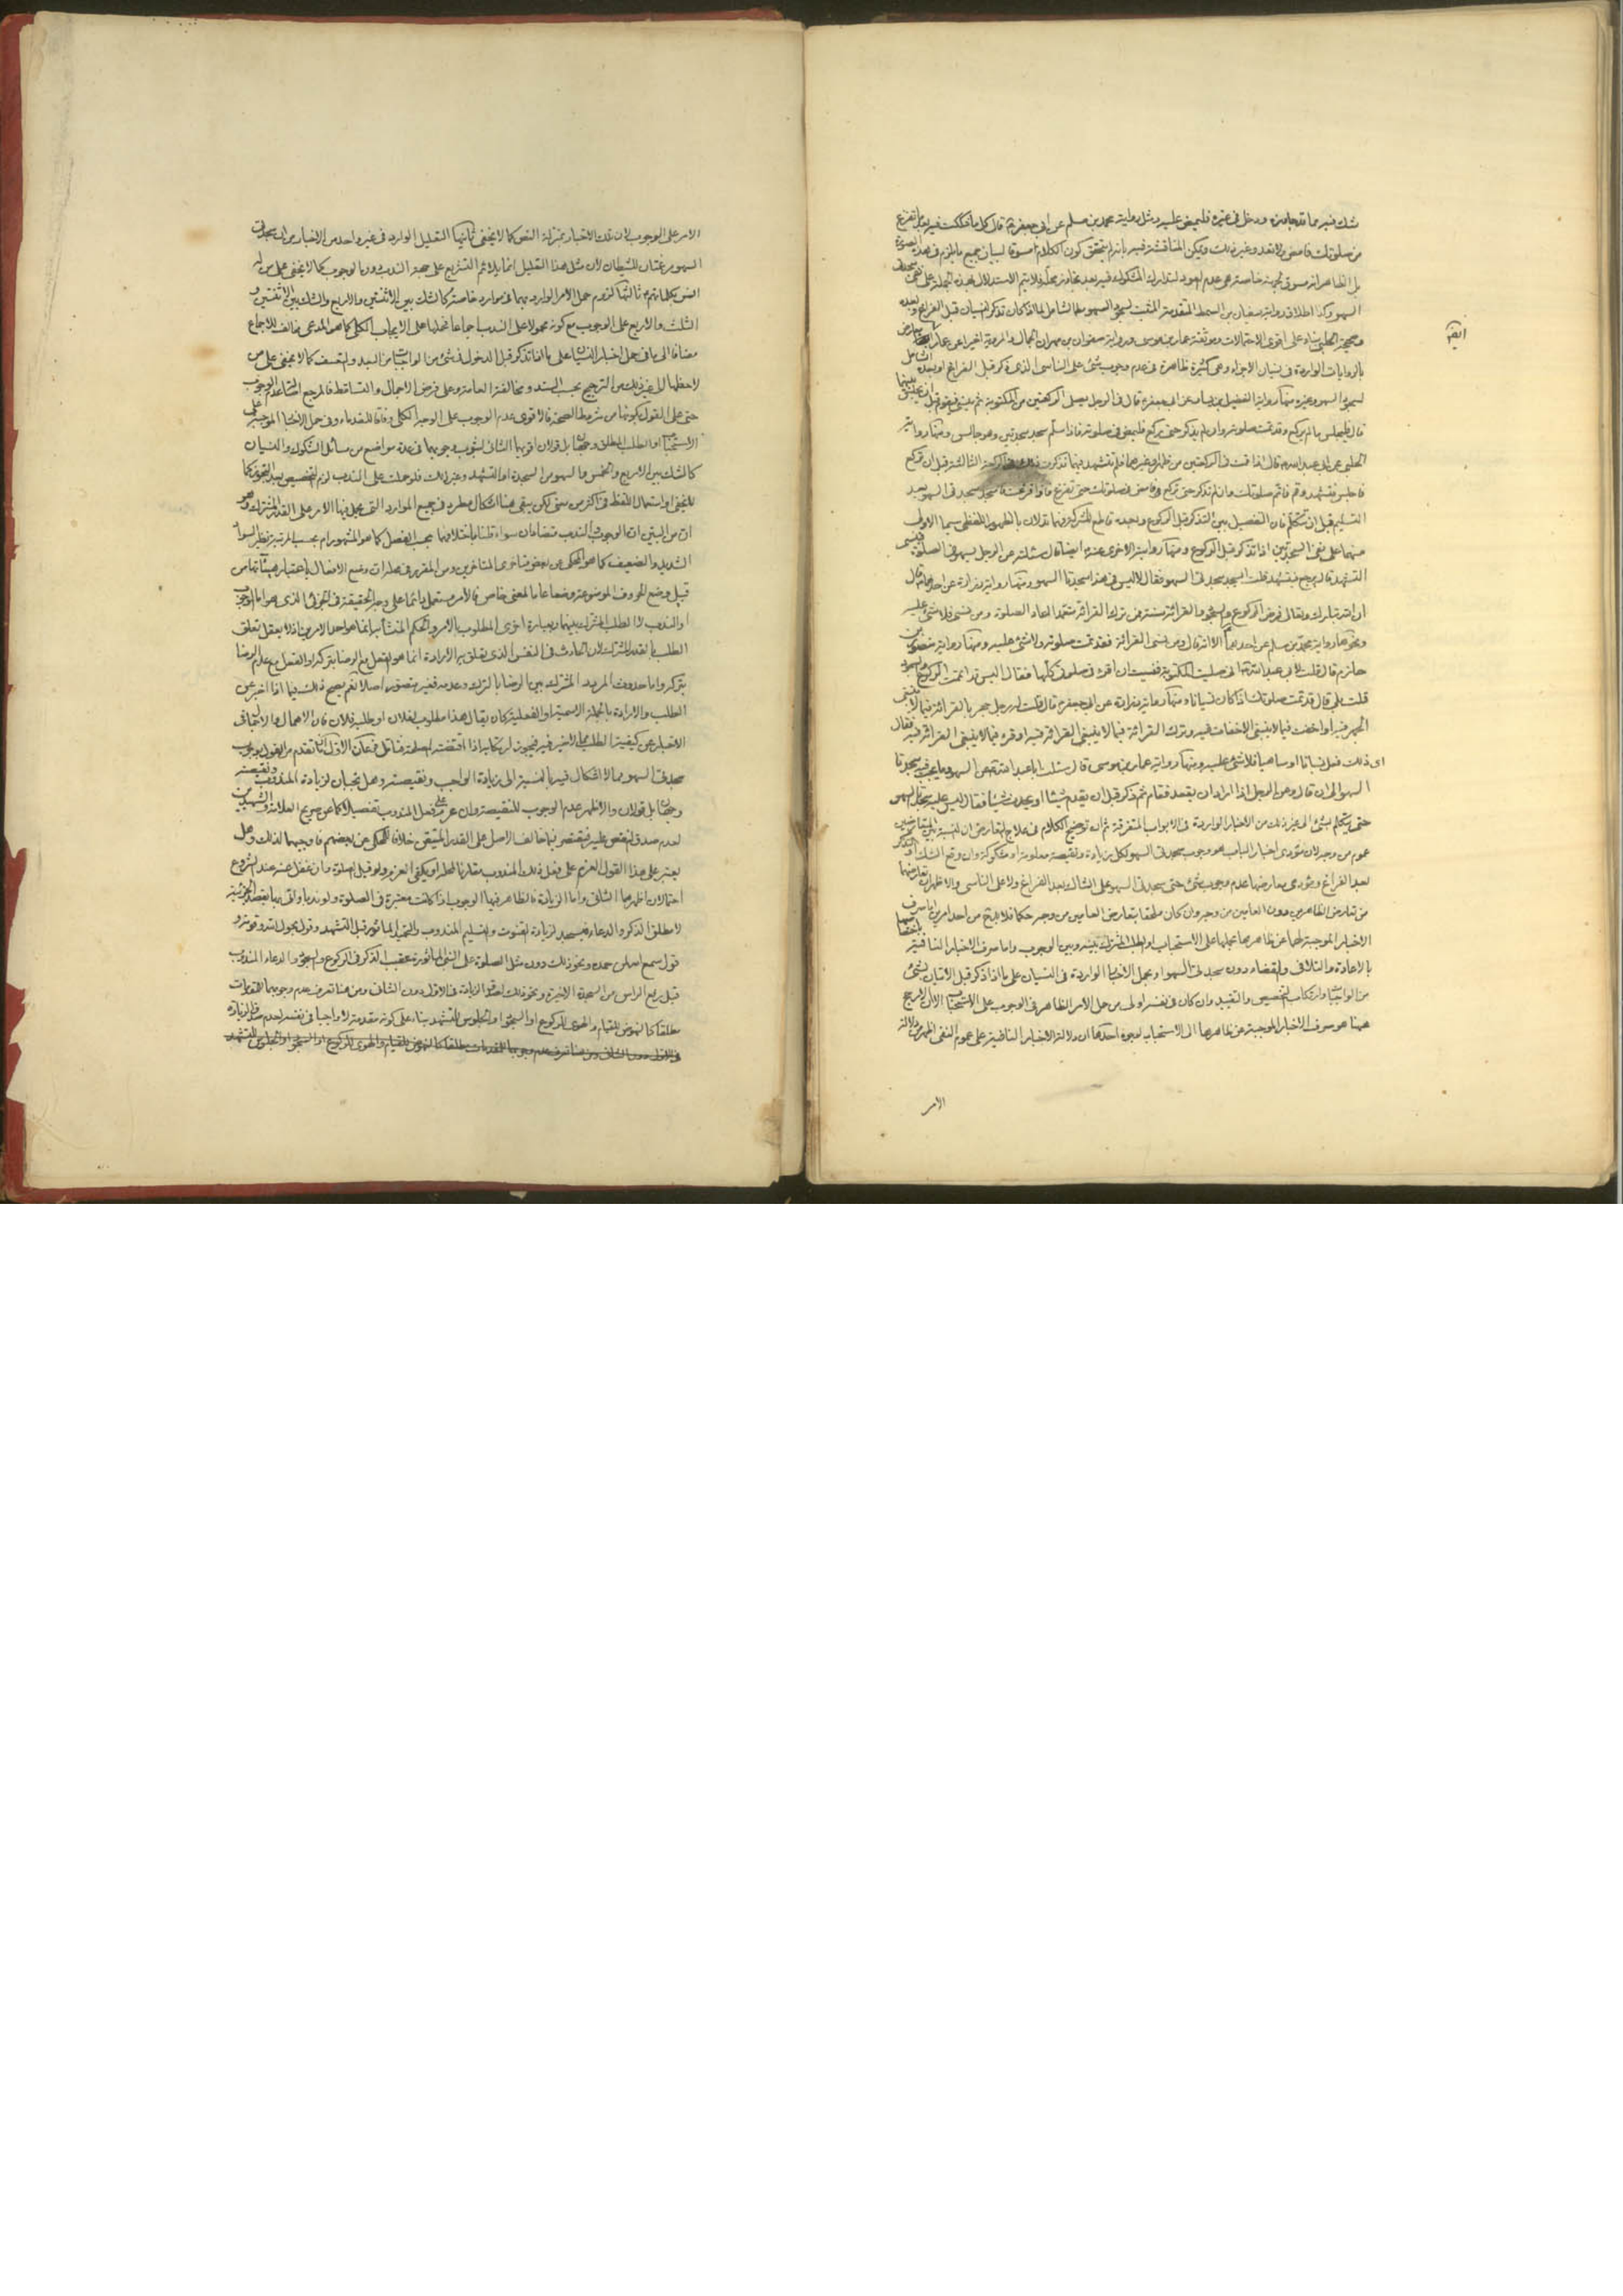 شك فيه مما قد جاوزه ودخل في غيره فليمض عليه ومثل رواية محمد بن مسلم عن ابي جعفر ع قال كل ما شككت فيه بعد ما تفرغ
من صلوتك فامض ولا تعد وغير ذلك ويمكن المناقشة فيه بانه لم يتحقق كون الكلام مسوقا لبيان جميع ما يلزم في هذه الصورة
بل الظاهر انه مسوق لجهة خاصة هي عدم العود لتدارك المشكوك فيه بعد تجاوز محله فلا يتم الاستدلال بهذه الجملة على نفي سجدتي
السهو وكذا اطلاق رواية سفيان بن السمط المتقدمة المثبت لسجود السهو الشامل لما اذا كان تذكر النسيان قبل الفراغ وبعده
وصحيحة الحلبي بناء على اقوى الاحتمالات وموثقة عمار بن موسى ورواية صفوان بن مهران الجمال
ايضا
بالروايات الواردة في نسيان الاجزاء وهي كثيرة ظاهرة في عدم وجوب شيء على الناسي الذي ذكر قبل الفراغ او بعده الشامل
لسجود السهو وغيره منها رواية الفضيل بن يسار عن ابي جعفر ع قال في الرجل يصلي الركعتين من المكتوبة ثم ينسى فيقوم قبل ان يجلس بينهما
قال فليجلس ما لم يركع وقد تمت صلوته وان لم يذكر حتى ركع فليمض في صلوته فاذا سلم سجد سجدتين وهو جالس ومنها رواية
الحلبي عن ابي عبد الله ع قال اذا قمت في الركعتين من ظهر او غيرهما فلم تتشهد فيهما فذكرت ذلك في الركعة الثالثة قبل ان تركع
فاجلس فتشهد وقم فاتم صلوتك وان لم تذكر حتى تركع فامض في صلوتك حتى تفرغ فاذا فرغت فاسجد سجدتي السهو بعد
التسليم قبل ان تتكلم فان التفصيل بين التذكر قبل الركوع وبعده قاطع للشركة
منهما على نفي السجدتين اذا تذكر قبل الركوع ومنها روايته الاخرى عنه ع ايضا قال سئلته عن الرجل يسهو في الصلوة فينسى
التشهد قال يرجع فيتشهد قلت ايسجد سجدتي السهو فقال لا ليس في هذا سجدتا السهو ومنها رواية زرارة عن احدهما ع قال
ان الله تبارك وتعالى فرض الركوع والسجود والقرائة سنة فمن ترك القرائة متعمدا اعاد الصلوة ومن نسي فلا شيء عليه
ونحوها رواية محمد بن مسلم عن احدهما ع الا انه قال ومن نسي القرائة فقد تمت صلوته ولا شيء عليه ومنها رواية منصور بن
حازم قال قلت لابي عبد الله ع اني صليت المكتوبة فنسيت ان اقرء في صلوتي كلها فقال اليس قد اتممت الركوع والسجود
قلت بلى قال قد تمت صلوتك اذا كان نسيانا ومنها رواية زرارة عن ابي جعفر ع قال قلت له رجل جهر بالقرائة فيما لا ينبغي
الجهر فيه او اخفت فيما لا ينبغي الاخفات فيه وترك القرائة فيما لا ينبغي القرائة فيه او قرء فيما لا ينبغي القرائة فيه فقال
اي ذلك فعل ناسيا او ساهيا فلا شيء عليه ومنها رواية عمار بن موسى قال سئلت ابا عبد الله ع عن السهو ما يجب فيه سجدتا
السهو الى ان قال وعن الرجل اذا اراد ان يقعد فقام ثم ذكر قبل ان يقدم شيئا او يحدث شيئا فقال ليس عليه سجدتا السهو
حتى يتكلم بشيء الى غير ذلك من الاخبار الواردة في الابواب المتفرقة ثم ان توضيح الكلام في علاج التعارض ان النسبة بين المتعارضين
عموم من وجه لان مؤدى اخبار الباب هو وجوب سجدتي السهو لكل زيادة ونقيصة معلومة او مشكوكة وان وقع الشك او التذكر
بعد الفراغ ومؤدى معارضها عدم وجوب شيء حتى سجدتي السهو على الشاك بعد الفراغ ولا على الناسي والاظهر ان تعارضهما
من تعارض الظاهرين دون العامين من وجه وان كان ملحقا بتعارض العامين من وجه حكما فلا بد من احد امرين اما صرف
الاخبار الموجبة لهما عن ظاهرها بحملها على الاستحباب او الطلب المشترك بينه وبين الوجوب واما صرف الاخبار النافية
بالاعادة والتلافي والقضاء دون سجدتي السهو او بحمل الاخبار الواردة في النسيان على ما اذا ذكر قبل الاتيان بشيء
من الواجبات وارتكاب التخصيص والتقييد وان كان في نفسه اولى من حمل الامر الظاهر في الوجوب على الاستحباب الا ان الارجح
ههنا هو صرف الاخبار الموجبة عن ظاهرها الى الاستحباب لوجوه احدها ان دلالة الاخبار النافية على عموم النفي اظهر من دلالة
الامر
الامر على الوجوب لان تلك الاخبار بمنزلة النص كما لا يخفى ثانيها التعليل الوارد في غير واحد من الاخبار من ان سجدتي
السهو مرغمتان للشيطان لان مثل هذا التعليل انما يلائم التشريع على جهة الندب دون الوجوب كما لا يخفى على من له
انس بكلماتهم ع ثالثها لزوم حمل الامر الوارد بهما في موارد خاصة كالشك بين الاثنتين والاربع والشك بين الاثنتين و
الثلث والاربع على الوجوب مع كونه محمولا على الندب اجماعا فحملها على الايجاب الكلي كما هو المدعى مخالف للاجماع
مضافا الى ما في حمل اخبار النسيان على ما اذا تذكر قبل الدخول في شيء من الواجبات من البعد والتعسف كما لا يخفى على من
لاحظها الى غير ذلك من الترجيح بحسب السند ومخالفة العامة وعلى فرض الاجمال والتساقط فالمرجع اصالة عدم الوجوب
حتى على القول بكونهما من شروط الصحة فالاقوى عدم الوجوب على الوجه الكلي وفاقا للقدماء وفي حمل الاخبار الموجبة على
الاستحباب او الطلب المطلق وجهان بل قولان اقويهما الثاني لثبوت وجوبهما في عدة مواضع من مسائل الشكوك والنسيان
كالشك بين الاربع والخمس والسهو من السجدة او التشهد وغير ذلك فلو حملت على الندب لزم التخصيص
او استعمال اللفظ في اكثر من معنى لكن يبقى هنا اشكال مطرد في جميع الموارد التي يحمل فيها الامر على القدر المشترك وهو
ان من البين ان الوجوب والندب متضادان سواء قلنا باختلافهما بحسب الفصل كما هو المشهور ام بحسب المرتبة نظير السواد
الشديد والضعيف كما هو المحكي عن بعض متاخري المتاخرين ومن المقرر في محله ان وضع الافعال باعتبار هيئاتها من
قبيل وضع الحروف الموضوعة وضعا عاما لمعنى خاص فالامر مستعمل دائما على وجه الحقيقة في الجزئي الذي هو اما الوجوب
او الندب لا الطلب المشترك بينهما وبعبارة اخرى المطلوب بالامر والحكم المنشأ به انما هو احد الامرين اذ لا يعقل تعلق
الطلب بالقدر المشترك لان الحادث في النفس الذي يتعلق به الارادة انما هو الفعل مع الرضا بتركه او الفعل مع عدم الرضا
بتركه واما حدوث المردد المشترك بين الرضا بالترك وعدمه فغير متصور اصلا نعم يصح ذلك فيما اذا اخبر عن
الطلب والارادة بالجملة الاسمية او الفعلية كان يقال هذا مطلوب لفلان او طلبه فلان فان الاهمال
الاخبار عن كيفية الطلب مما لا ضير فيه فيجوز ارتكابه اذا اقتضته المصلحة فتامل
سجدتي السهو مما لا اشكال فيه بالنسبة الى زيادة الواجب ونقيصته وهل تجبان لزيادة المندوب ونقيصته
وجهان بل قولان والاظهر عدم الوجوب للنقيصة وان عزم على فعل المندوب تفصيلا كما عن صريح العلامة والشهيدين
لعدم صدق النقص عليه فيقتصر فيما خالف الاصل على القدر المتيقن خلافا للمحكي عن بعضهم فاوجبهما لذلك وهل
يعتبر على هذا القول العزم على فعل ذلك المندوب مقارنا لمحله او يكفي العزم ولو قبل الصلوة وان غفل عنه عند الشروع
احتمالان اظهرهما الثاني واما الزيادة فالظاهر فيها الوجوب اذا كانت معتبرة في الصلوة ولو ندبا واتى بها بقصد الجزئية
لا مطلق الذكر والدعاء فيسجد لزيادة القنوت والتسليم المندوب والتحيات الماثورة قبل التشهد وقول بحول الله وقوته و
قول سمع الله لمن حمده ونحو ذلك دون مثل الصلوة على النبي الماثورة عقيب الذكر في الركوع والسجود والدعاء المندوب
قبل رفع الراس من السجدة الاخيرة ونحو ذلك لصدق الزيادة في الاول دون الثاني ومن هنا تعرف عدم وجوبهما للمقدمات
مطلقا كالنهوض للقيام والهوي للركوع او السجود او الجلوس للتشهد بناء على كونه مقدمة لا واجبا في نفسه لعدم صدق الزيادة
في الاول دون الثاني ومن هنا تعرف عدم وجوبهما للمقدمات مطلقا كالنهوض للقيام والهوي للركوع او السجود او الجلوس للتشهد